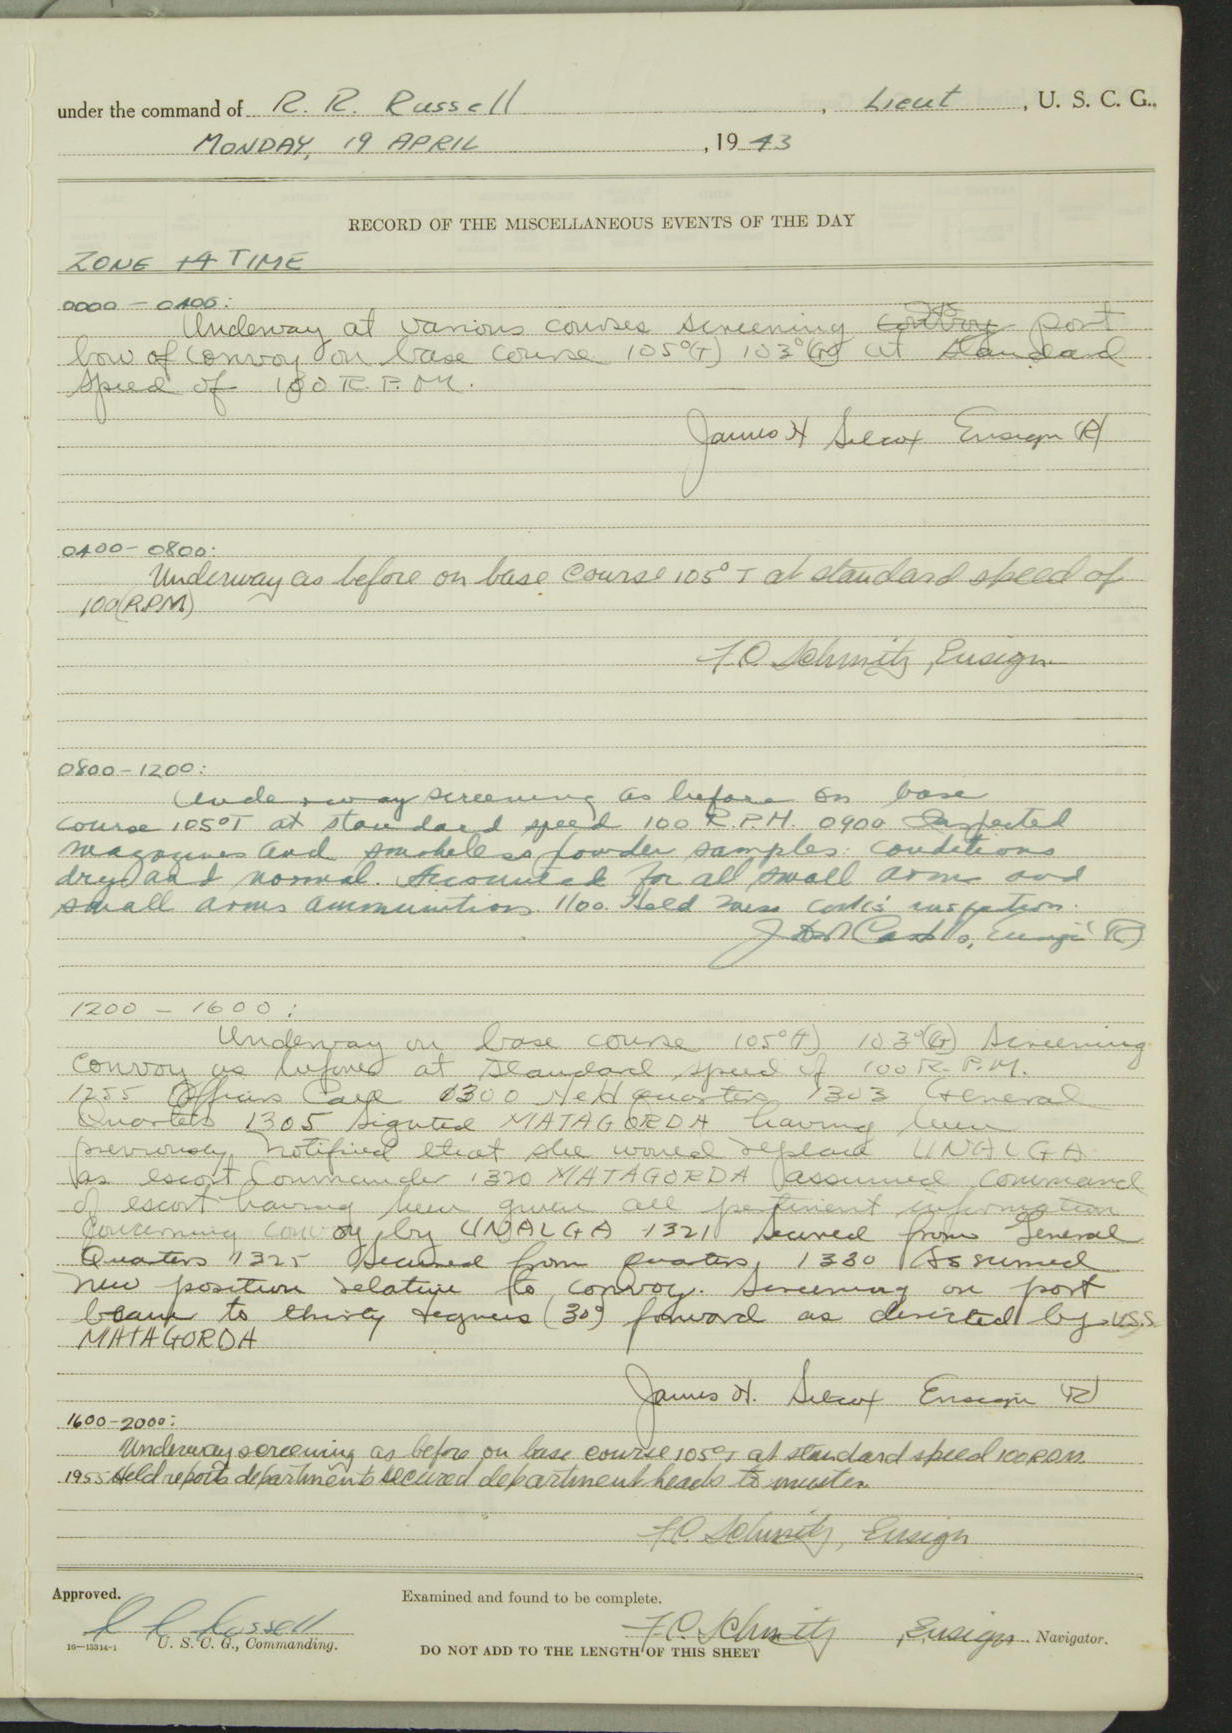 under the command of R. R. Russell, Lieut, U. S. C. G.,
MONDAY, 19 APRIL, 1943
RECORD OF THE MISCELLANEOUS EVENTS OF THE DAY
ZONE +4 TIME
0000 - 0400:
Underway at various courses screening port
bow of convoy on base course 105°(T) 103°(G) at standard
speed of 100 R.P.M.
James H Silcox Ensign (R)
0400 - 0800:
Underway as before on base course 105° T at standard speed of
100 (RPM)
F.C. Schmitz, Ensign
0800 - 1200:
Underway screening as before on base
course 105°T at standard speed 100 R.P.M. 0900 Inspected
magazines and smokeless powder samples: conditions
dry and normal. Accounted for all small arms and
small arms ammunition. 1100. Held mess cook's inspection.
Ensign (R)
1200 - 1600:
Underway on base course 105°(T) 103°(G) screening
convoy as before at standard speed of 100 R.P.M.
1255 Officers Call 1300 Held quarters 1303 General
Quarters 1305 Sighted MATAGORDA having been
previously notified that she would replace UNALGA
as escort Commander 1320 MATAGORDA assumed command
of escort having been given all pertinent information
concerning convoy by UNALGA 1321 Secured from General
Quarters 1325 Secured from quarters, 1330 Assumed
new position relative to convoy. Screening on port
beam to thirty degrees (30°) forward as directed by U.S.S.
MATAGORDA
James H. Silcox Ensign (R)
1600-2000:
Underway screening as before on base course 105°T at standard speed 100 R.P.M.
1955 Held reports departments secured department heads to muster.
F.C. Schmitz, Ensign
Approved.
Examined and found to be complete.
R R Russell
F.C. Schmitz, Ensign. Navigator.
16—13314-1 U. S. C. G., Commanding.
DO NOT ADD TO THE LENGTH OF THIS SHEET